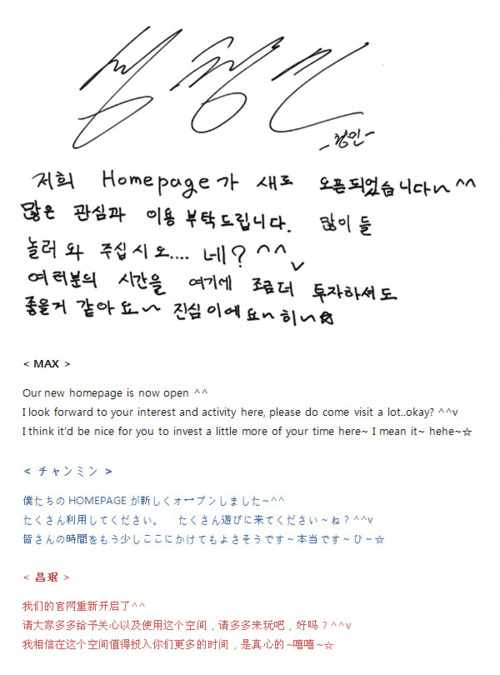 저희 Homepage가 새로 오픈되었습니다~ ^^
많은 관심과 이용 부탁드립니다. 많이 들
놀러 와 주십시오.... 네? ^^v
여러분의 시간을 여기에 조금더 투자하셔도
좋을거 같아요~ 진심이에요~히~☆
< MAX >
Our new homepage is now open ^^
I look forward to your interest and activity here, please do come visit a lot..okay? ^^v
I think it'd be nice for you to invest a little more of your time here~ I mean it~ hehe~☆
< チャンミン >
僕たちの HOMEPAGE が新しくオープンしました~^^
たくさん利用してください。 たくさん遊びに来てください~ね?^^v
皆さんの時間をもう少しここにかけてもよさそうです~本当です~ひ~☆
< 昌珉 >
我们的官网重新开启了^^
请大家多多给予关心以及使用这个空间，请多多来玩吧，好吗？^^v
我相信在这个空间值得投入你们更多的时间，是真心的~嘻嘻~☆